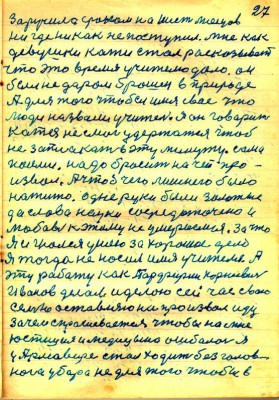 27
Заружила с розгом на шест месяцов
нигде никак не поступил. Мне как
девушки Кати стал расказывать
что это время учителю дало, он
был не даром брошен в природе
А для того чтобы имя свое это
люди назвали учител. Я он говорит
Катя не смог удержатся чтоб
не заплакать в эту минуту. Сами
поняли, надо бросит на чет про-
извол. А чтоб чего лишнего было
нажито. одне руки были золотые
да слова науки сосредоточено и
любовь к этому не умиряемая. За что
Я и гнался умело за хорошое дело
Я тогда не носил имя учителя. А
эту работу как Парфирий Корнеевич
Иванов делал и делаю сей час свою
семью оставляю на произвол иду
Зачем спрашивается чтобы на мне
юстиция и медицына ошиблас Я
у Армавере стал ходит без голов-
ного убора не для того чтобы в